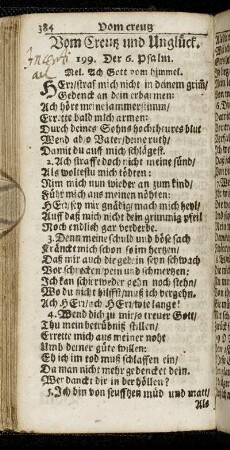 384 Vom creutz
Vom Creutz und Unglück.
199. Der 6. Psalm.
Mel. Ach Gott vom himmel.
HErr/ straf mich nicht in deinem grim̃/
Gedenck an dein erbarmen:
Ach höre meine jammerstimm/
Errette bald mich armen:
Durch deines Sohns hochtheures blut
Wend ab/ o Vater/ deine ruth/
Damit du auf mich schlägest.
2. Ach straffe doch nicht meine sünd/
Als woltestu mich tödten:
Nim mich nun wieder an zum kind/
Führ mich aus meinen nöthen:
HErr/ sey mir gnädig/ mach mich heyl/
Auff daß mich nicht dein grimmig pfeil
Noch endlich gar verderbe.
3. Denn meine schuld und böse sach
Kränckt mich schon sehr im hertzen/
Daß mir auch die gebein seyn schwach
Vor schrecken/ pein und schmertzen:
Ich kan schier weder gehn noch stehn/
Wo du nicht hilffst/ muß ich vergehn.
Ach HErr/ ach HErr wie lange!
4. Wend dich zu mir/ o treuer Gott/
Thu mein betrübniß stillen/
Errette mich aus meiner noht
Umb deiner güte willen:
Eh ich im tod muß schlaffen ein/
Da man nicht mehr gedencket dein.
Wer danckt dir in der höllen?
5. Ich bin von seufftzen müd und matt/
Als